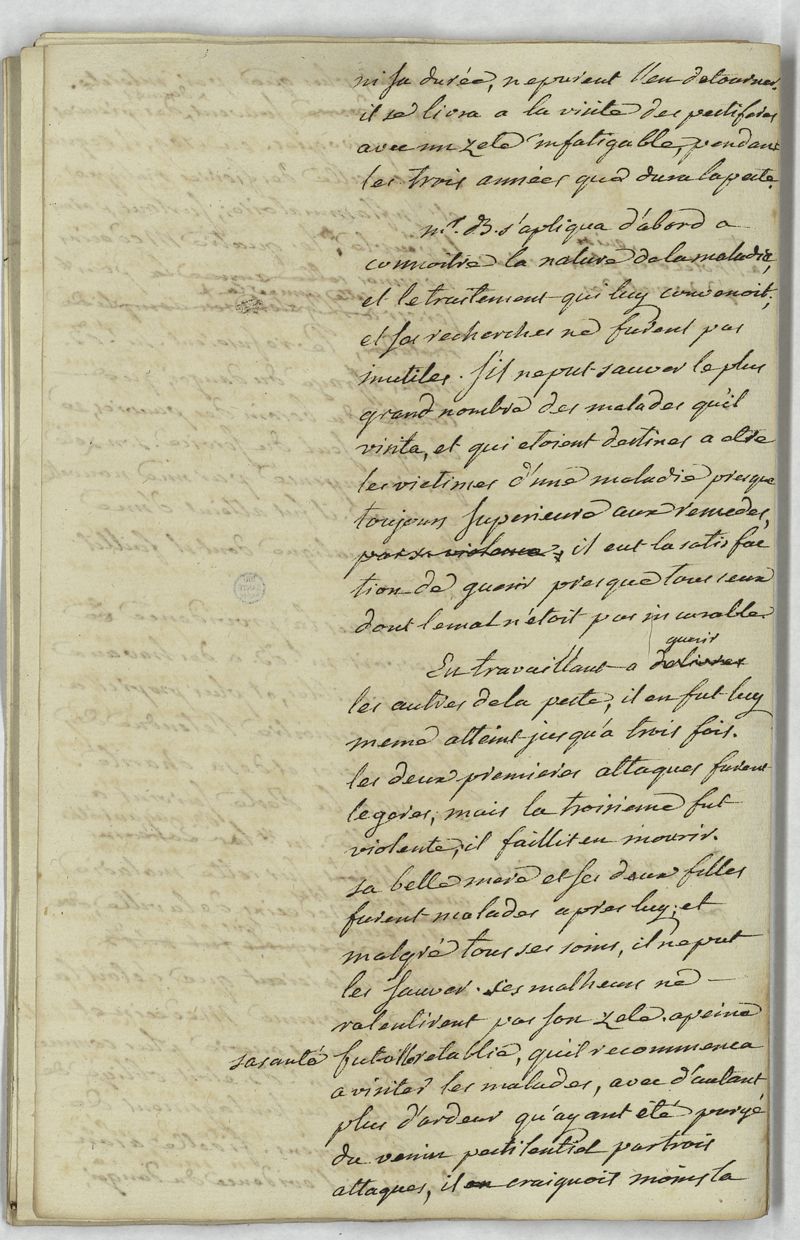 ni sa durée, ne purent l'en detourner.
il se livra a la visite des pestiferés
avec un zele infatigable, pendant
les trois années que dura la peste.
mr. B. s'apliqua d'abord a
connoitre la nature de la maladie,
et le traitement qui luy convenoit;
et ses recherches ne furent pas
inutiles. S'il ne put sauver le plus
grand nombre des malades qu'il
visita, et qui etoient destinés a etre
les victimes d'une maladie presque
toujours superieure aux remedes,
par sa violence, il eut la satisfac
tion de guerir presque tous ceux
dont le mal n'étoit pas incurable.
guerir
En travaillant a delivrer
les autres de la peste, il en fut luy
meme atteint jusqu'a trois fois.
les deux premieres attaques furent
legeres, mais la troisieme fut
violente, il faillit en mourir.
sa belle mere et ses deux filles
furent malades apres luy, et
malgré tous ses soins, il ne put
les sauver. ses malheurs ne
ralentirent pas son zele. apeine
sa santé fut-elle retablie, qu'il recommenca
a visiter les malades, avec d'autant
plus d'ardeur qu'ayant été purgé
du venin pestilentiel par trois
attaques, il en craignoit moins la